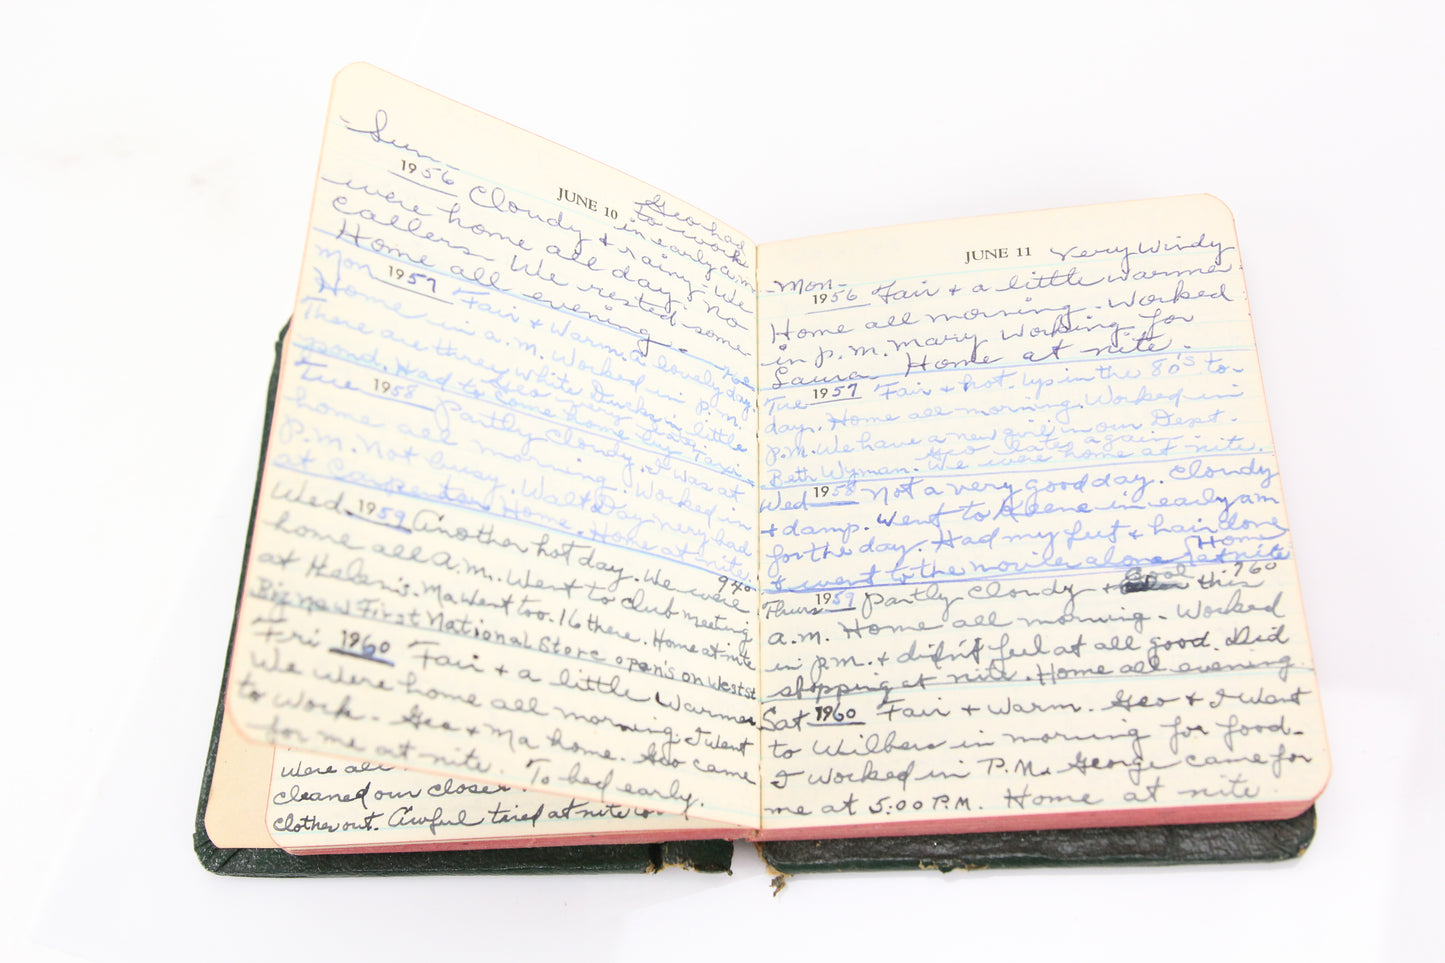 Sun-
JUNE 10
Geo had
to work
in early a.m.
1956 Cloudy & rainy - We
were home all day. No
callers. We rested some
Home all evening -
Mon 1957 Fair & Warm. a lovely day.
Home in a.m. Worked in p.m.
There are three white Ducks in little
pond. Had to come home by Taxi -
Geo very late
Tue 1958 Partly Cloudy. I was at
home all morning. Worked in
P.M. Not busy. Walt Day very bad
at Carpenter Home. Home at nite.
Wed. 1959 Another hot day. 94°
We were
home all A.M. Went to club meeting
at Helen's. Ma went too. 16 there. Home at nite
Big new First National Store open's on West St
Fri 1960 Fair & a little Warmer
We were home all morning. I went
to work - Geo & Ma home. Geo came
for me at nite. To bed early.
were all
cleaned our closet.
clothes out. Awful tired at nite
JUNE 11 Very Windy
Mon-
1956 Fair & a little warmer
Home all morning. Worked
in p.m. Mary Working for
Laura Home at nite.
Tue 1957 Fair & hot. Up in the 80's to-
day. Home all morning. Worked in
p.m. We have a new girl in our Dept.
Geo late again
Beth Wyman. We were home at nite.
Wed 1958 Not a very good day. Cloudy
& damp. Went to Keene in early am
for the day. Had my feet & hair done
I went to the movies alone. Home
at nite
Thurs 1959 Partly Cloudy & cool this
960
a.m. Home all morning - Worked
in p.m. & didn't feel at all good. Did
shopping at nite. Home all evening.
Sat 1960 Fair & warm. Geo & I went
to Wilbers in morning for food -
I worked in P.M. George came for
me at 5:00 P.M. Home at nite